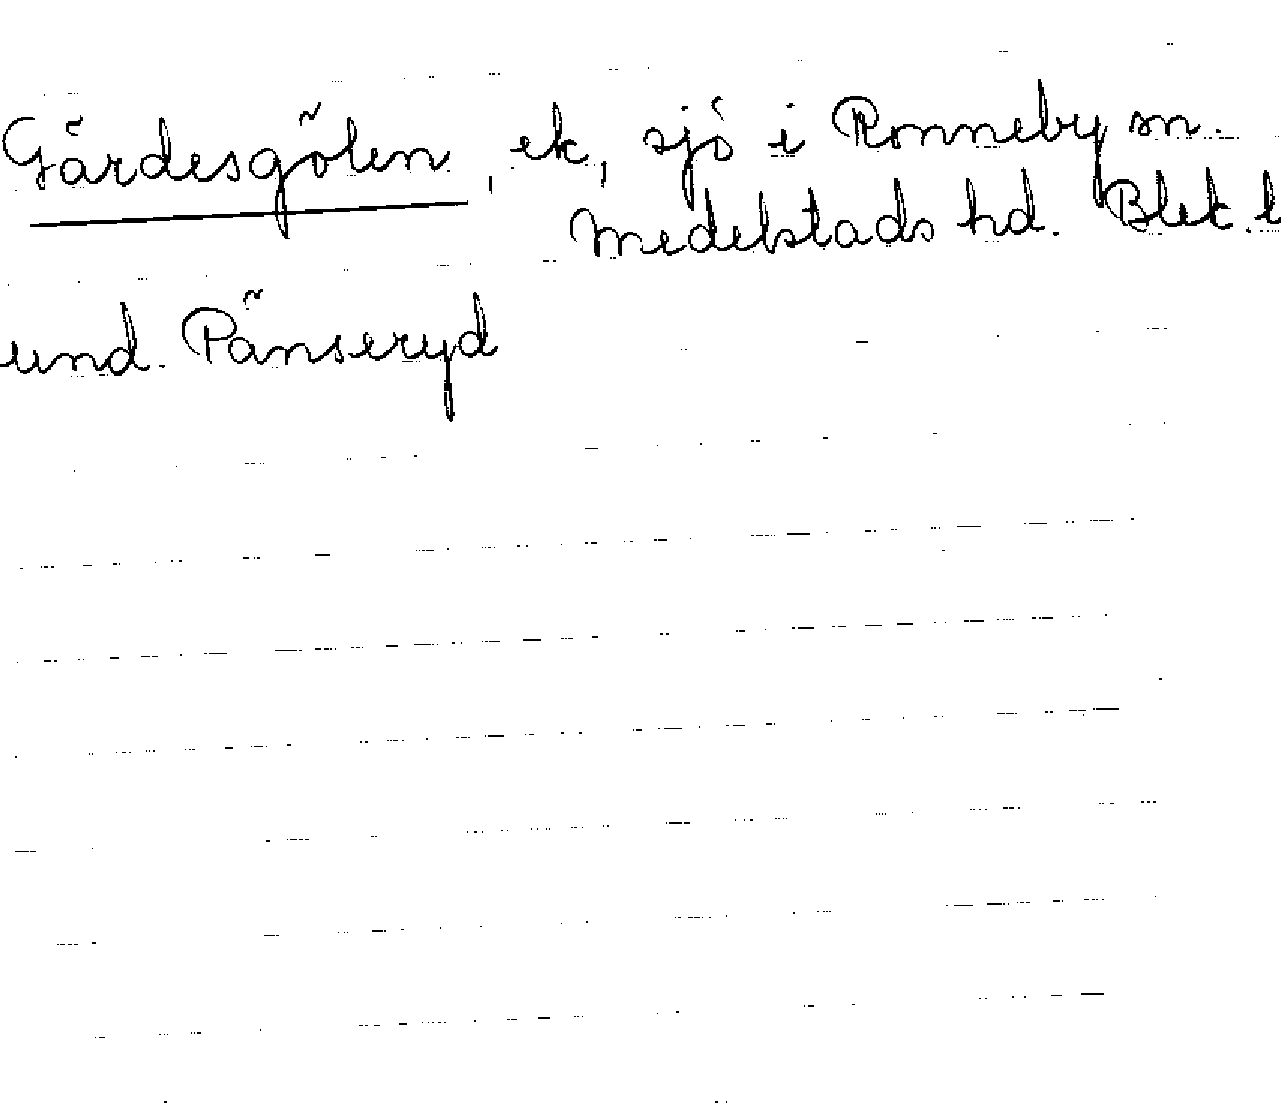 Gärdesgölen, ek, sjö i Ronneby sn.
Medelstads hd. Blek. l
und. Pänseryd